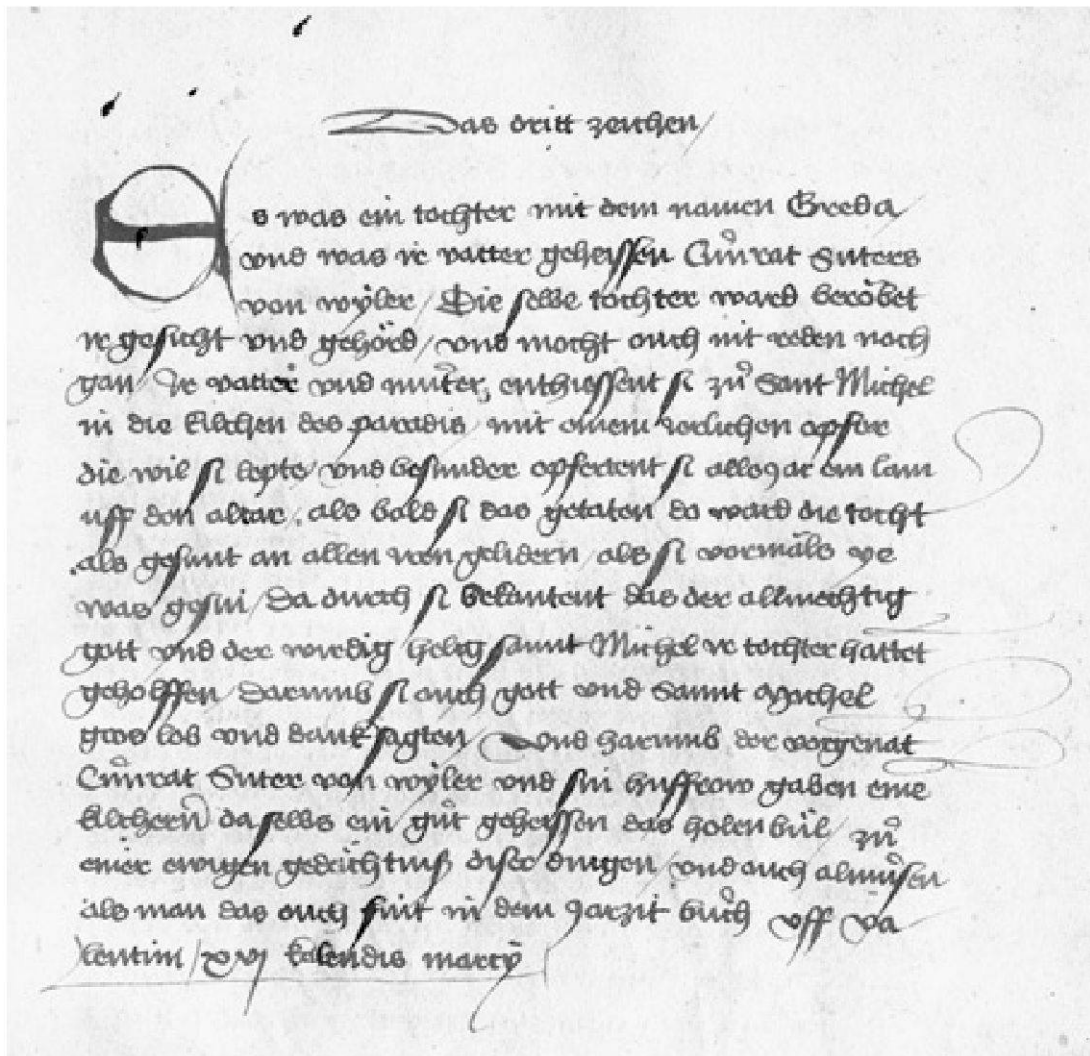 Das dritt zeichen /
Es was ein tochter mit dem namen Greda
vnd was ir vatter geheissen Cůnrat Suters
von wyler / Die selbe tochter ward beröbet
ir gesicht vnd gehörd / vnd mocht ouch nit reden noch
gan / Ir vatter vnd můter, enthiessent si zů Sant Michel
in die kilchen des paradis mit einem ierlichen opffer
die wil si lepte / vnd besunder opfertent si alle jar ein lam
uff den altar, als bald si das getaten do ward die tocht
als gesunt an allen iren gelidern / als si vormåls ye
was gesin / Da durch si bekantent das der allmechtig
gott vnd der wirdig helig sannt Michel ir tochter hattet
geholffen / Darumb si ouch gott vnd Sannt Michel
gros lob vnd dank sagten / Vnd harumb der vorgenāt
Cůnrat Suter von wyler vnd sin husfrow gaben eine
kilchern da selbs ein gůt geheissen das holenbül / zů
einer ewigen gedächtniß diser dingen / vnd ouch almůsen
als man das ouch fint in dem jarzit bůch vff va
lentini / xvj kalendis marcÿ